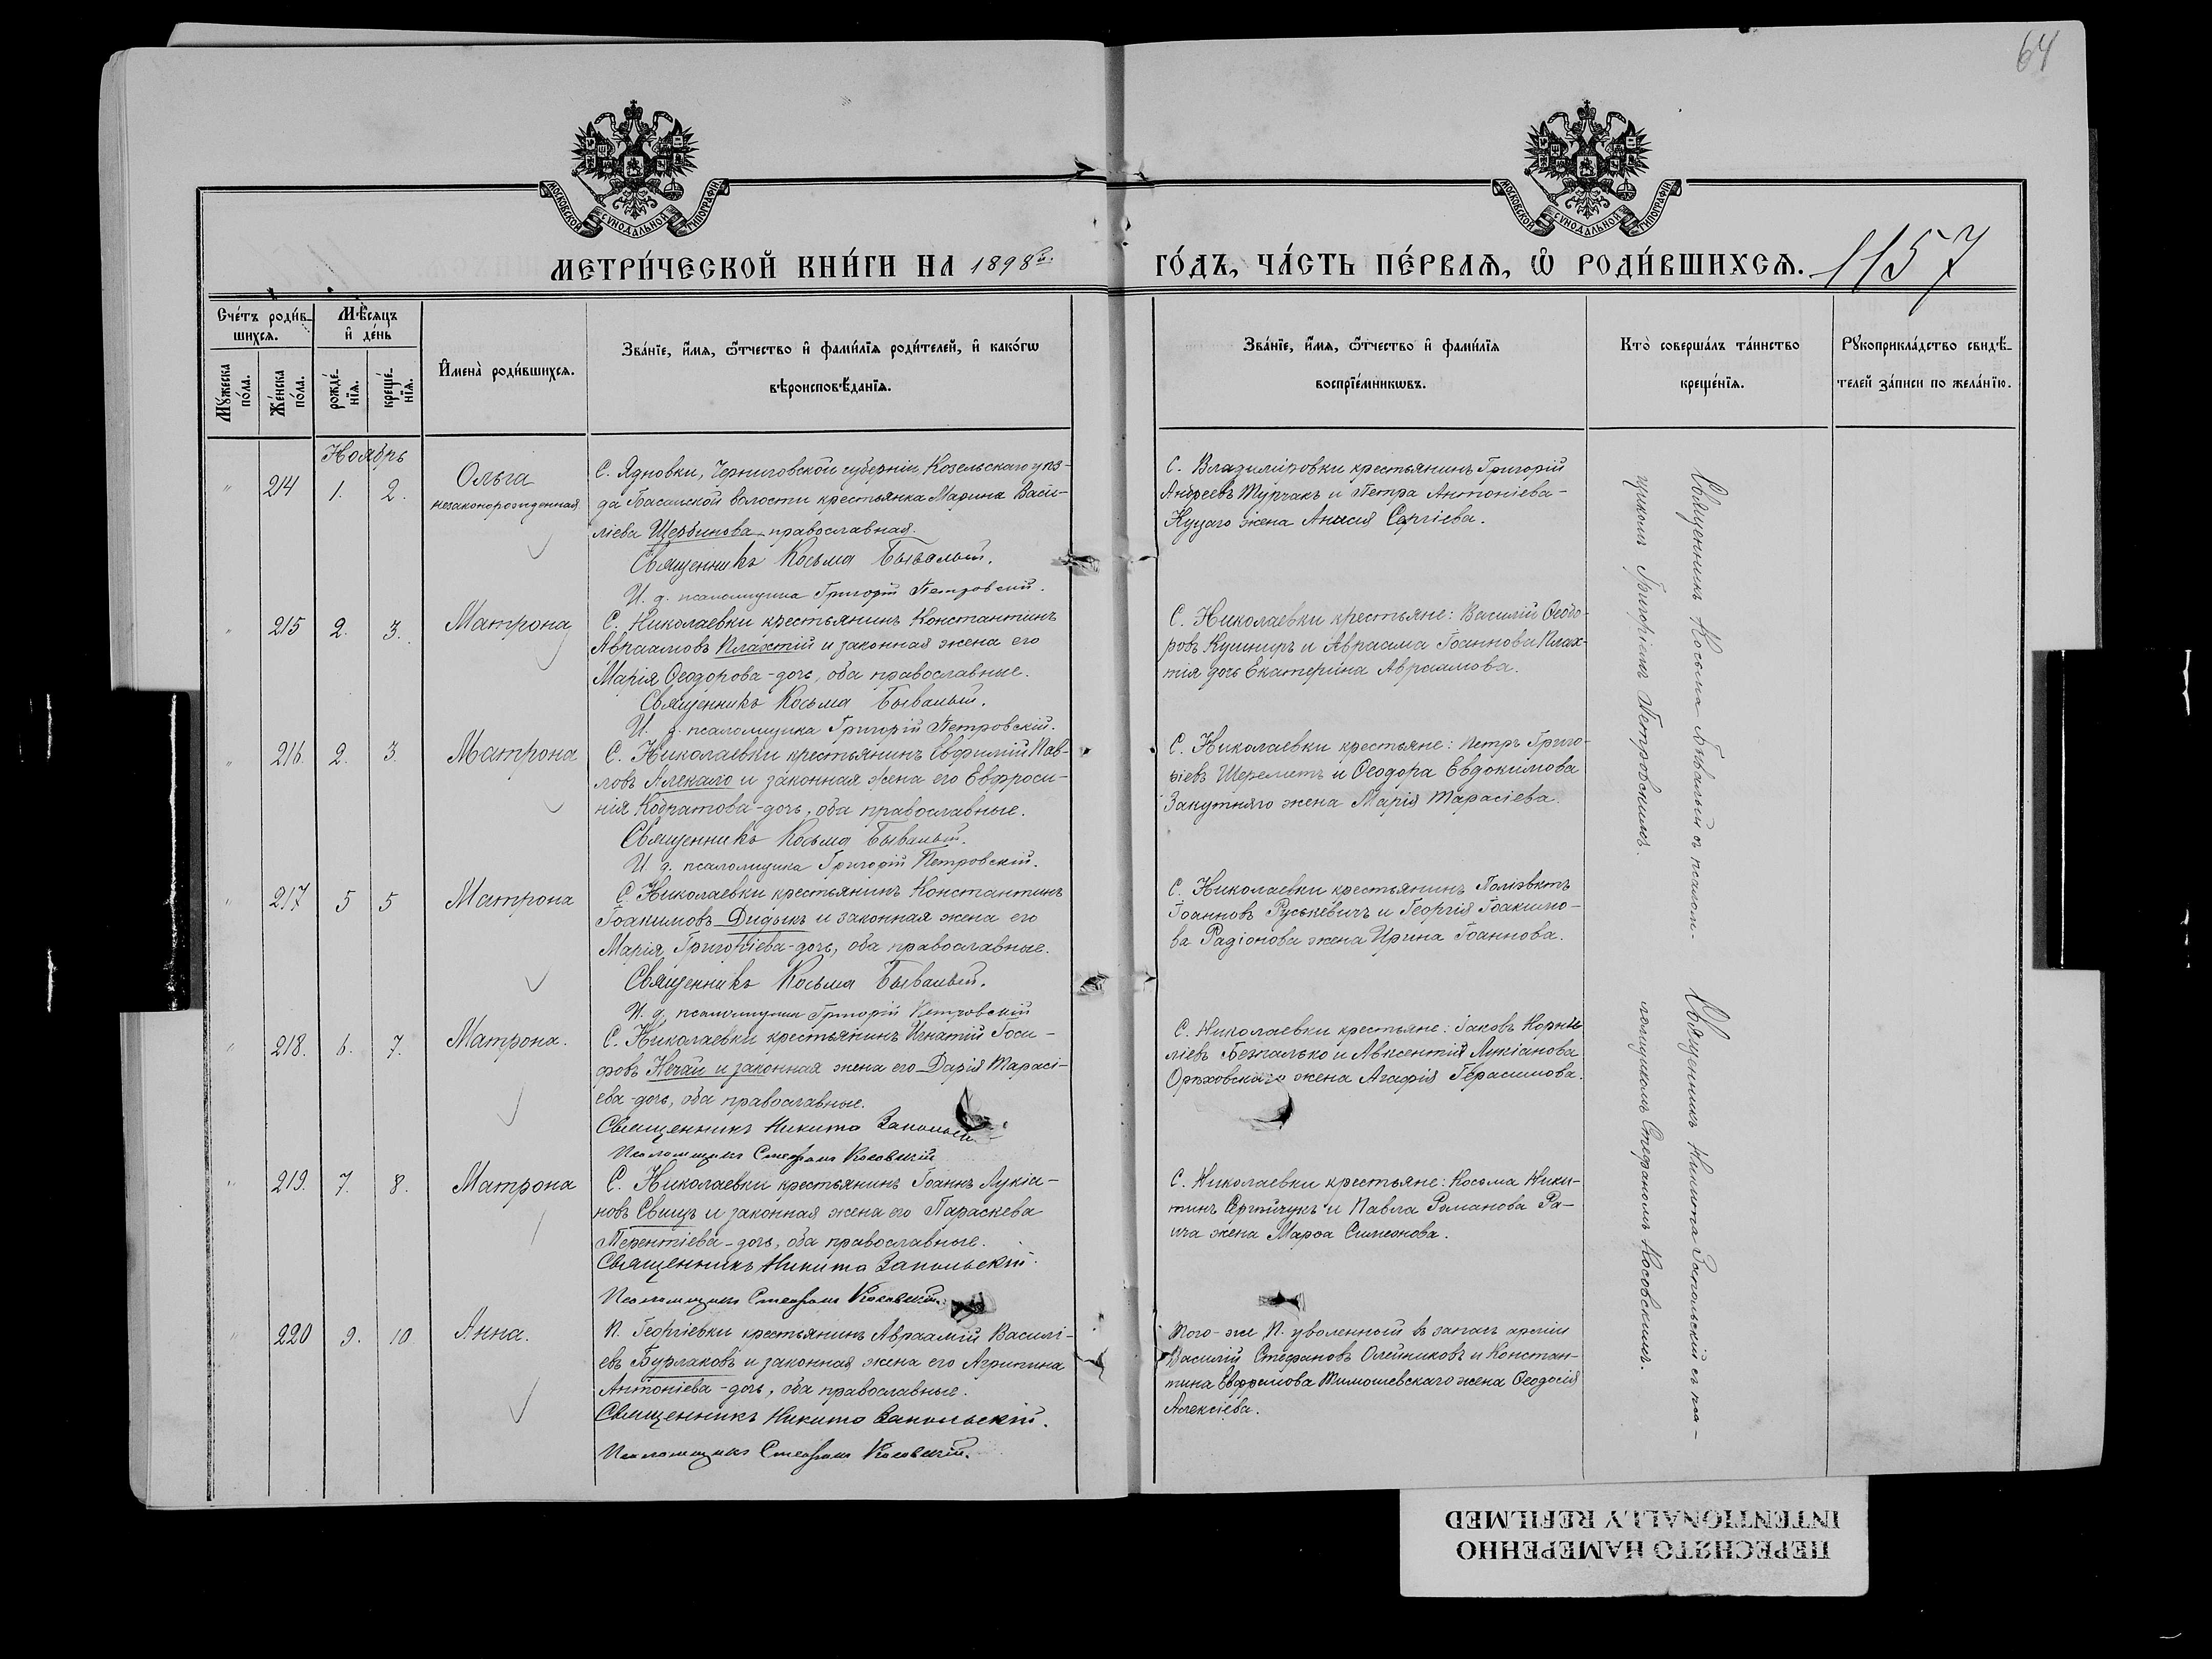 64
МОСКОВСКОЙ СУНОДАЛЬНОЙ ТИПОГРАФІИ
МОСКОВСКОЙ СУНОДАЛЬНОЙ ТИПОГРАФІИ
МЕТРИ́ЧЕСКОЙ КНИ́ГИ НА 1898й.
ГО́ДЪ, ЧА́СТЬ ПЕ́РВАѦ, Ѿ РОДИ́ВШИХСѦ. 1157
Сче́тъ роди́в-
шихсѧ.
Мꙋ́жеска по́ла.
Же́нска по́ла.
Мѣ́сѧцъ
и҆ де́нь
рожде́-
нїѧ.
креще́-
нїѧ.
И҆мена̀ роди́вшихсѧ.
Зва́нїе, и҆́мѧ, ѻ҆́тчество и҆ фами́лїѧ роди́телей, и҆ како́гѡ
вѣроисповѣ́данїѧ.
Зва́нїе, и҆́мѧ, ѻ҆́тчество и҆ фами́лїѧ
воспрїе́мникѡвъ.
Кто̀ соверша́лъ та́инство
креще́нїѧ.
Рꙋкоприкла́дство свидѣ́-
телей за́писи по жела́нїю.
Ноябрь
" 214 1. 2.
Ольга
незаконорожденная
С. Ядновки, Черниговской губерніи Козельскаго уѣз-
да Басанской волости крестьянка Марина Васи-
ліева Щербинова православная.
Священникъ Косьма Бывалый.
И. д. псаломщика Григорій Петровскій.
С. Владиміровки крестьянинъ Григорій
Андреевъ Турчакъ и Петра Антоніева-
Куцаго жена Анисія Сергіева.
" 215 2. 3.
Матрона
С. Николаевки крестьянинъ Константинъ
Авраамовъ Плахтій и законная жена его
Марія Ѳеодорова-дочь, оба православные.
Священникъ Косьма Бывалый.
И. д. псаломщика Григорій Петровскій.
С. Николаевки крестьяне: Василій Ѳеодо-
ровъ Кушниръ и Авраама Іоаннова Плах-
тія дочь Екатерина Авраамова.
" 216. 2. 3.
Матрона
С. Николаевки крестьянинъ Евфимій Пав-
ловъ и законная жена его Евфроси-
нія Кодратова-дочь, оба православные.
Священникъ Косьма Бывалый.
И. д. псаломщика Григорій Петровскій.
С. Николаевки крестьяне: Петръ Григо-
ріевъ Шереметъ и Ѳеодора Евдокимова
Закутняго жена Марія Тарасіева.
" 217 5 5
Матрона
С. Николаевки крестьянинъ Константинъ
Іоакимовъ Дидыкъ и законная жена его
Марія Григоріева-дочь, оба православные.
Священникъ Косьма Бывалый.
И. д. псаломщика Григорій Петровскій
С. Николаевки крестьянинъ Поліевктъ
Іоанновъ Руськевичъ и Георгія Іоакимо-
ва Радіонова жена Ирина Іоаннова.
" 218. 6. 7.
Матрона.
С. Николаевки крестьянинъ Игнатій Іоси-
фовъ Нечай и законная жена его Дарія Тарасі-
ева-дочь, оба православные.
Священникъ Никита Запольскій
Псаломщикъ Стефанъ Косовскій
С. Николаевки крестьяне: Іаковъ Корни-
ліевъ Безпалько и Авксентія Лукіанова
Орѣховскаго жена Агафія Герасимова.
" 219. 7. 8.
Матрона
С. Николаевки крестьянинъ Іоаннъ Лукіа-
новъ Свищъ и законная жена его Параскева
Терентіева-дочь, оба православные.
Священникъ Никита Запольскій.
Псаломщикъ Стефанъ Косовскій.
С. Николаевки крестьяне: Косьма Ники-
тинъ Сергійчукъ и Павла Романова Ра-
жена Марѳа Симеонова.
" 220 9. 10
Анна.
П. Георгіевки крестьянинъ Авраамій Василі-
евъ Бурлаковъ и законная жена его Агрипина
Антоніева-дочь, оба православные.
Священникъ Никита Запольскій.
Псаломщикъ Стефанъ Косовскій.
Того-же П. уволенный въ запасъ арміи
Василій Стефановъ Олейниковъ и Констан-
тина Евфимова Тимошевскаго жена Ѳеодосія
Алексіева.
Священникъ Косьма Бывалый съ псалом-
щикомъ Григоріемъ Петровскимъ.
Священникъ Никита Запольскій съ пса-
ломщикомъ Стефаномъ Косовскимъ.
ПЕРЕСНЯТО НАМЕРЕННО
INTENTIONALLY REFILMED